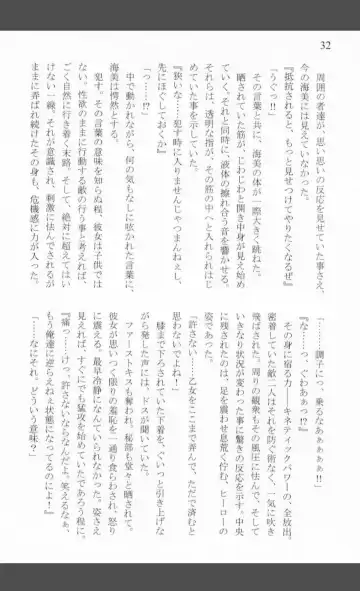 32
周囲の者達が、思い思いの反応を見せていた事さえ、
今の海美には見えていなかった。
『抵抗されると、もっと見せつけてやりたくなるぜ』
「うぐっ!!」
その言葉と共に、海美の体が一際大きく跳ねた。
閉じていた筋が、じわじわと開き中身が見え始め
ていく。それと同時に、液体の擦れ合う音を響かせる。
それらは、透明な指が、その筋の中へと入れられはじ
めていた事を示していた。
『狭いな……犯す時に入りませんじゃつまんねぇし、
先にほぐしておくか』
「っ……!?」
中で動かれながら、何の気もなしに呟かれた言葉に、
海美は愕然とする。
犯す。その言葉の意味を知らぬ程、彼女は子供では
ない。性欲のままに行動する敵の行う事としては、す
ごく自然に行き着く末路。そして、絶対に超えてはい
けない一線。それが意識され、刺激に怯んでされるが
ままに弄ばれ続けたその身も、危機感に力が入った。
「……調子にっ、乗るなぁぁぁぁぁ!!」
『な……っ、ぐわぁぁっ!?』
その身に宿る力――キネティックパワーの、全放出。
密着していた敵二人はそれを防ぐ術なく、一気に吹き
飛ばされた。周りの観衆もその風圧に怯んで、そして
いきなり状況が変わった事に驚きの反応を示す。中央
に残されたのは、足を震わせ息荒く佇む、ヒーローの
姿であった。
「許さない……乙女をここまで弄んで、ただで済むと
思わないでよね!」
膝まで下ろされていた下着を、ぐいっと引き上げな
がら発した声には、ドスが聞いていた。
ファーストキスも奪われ、秘部も堂々と晒されて。
彼女が思いつく限りの羞恥を一通り食らわされ、怒り
に震える。最早冷静でなんていられなかった。姿さえ
見えれば、すぐにでも猛攻を始めていたであろう程に。
『痛っ……けっ、許さないならなんだよ。笑えるなぁ、
もう俺達に逆らえねぇ状態になってるのによ!』
「……なにそれ。どういう意味?」